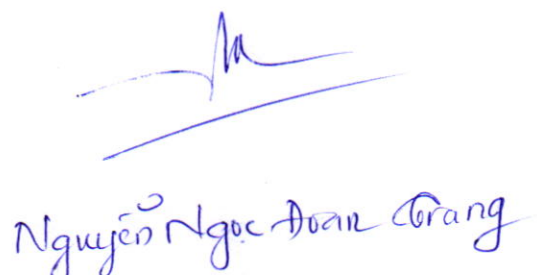 Nguyễn Ngọc Đoan Trang